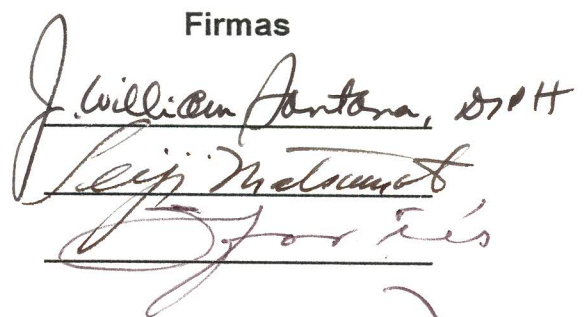 Firmas
J. William Santana, DrPH
Seiji Matsumot
J. Fortiés